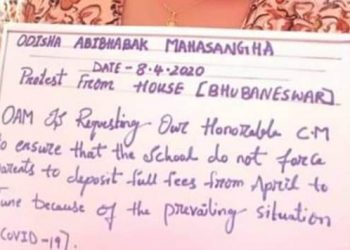 ODISHA ABIBHABAK MAHASANGHA
DATE - 8.4.2020
Protest From HOUSE [BHUBANESWAR]
OAM Is Requesting Our Honorable C.M
to ensure that the School do not force
parents to deposit full fees from April to
June because of the prevailing situation
[COVID-19].